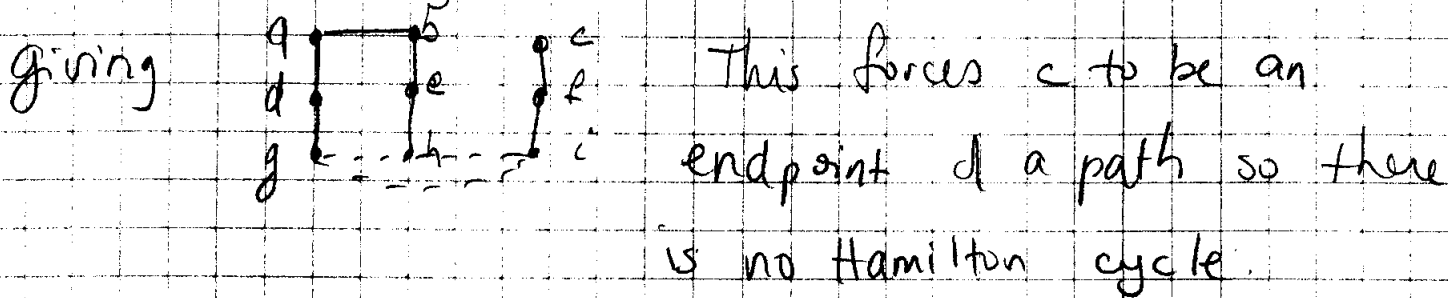 giving a b c This forces c to be an
d e f
g h i endpoint of a path so there
is no Hamilton cycle.